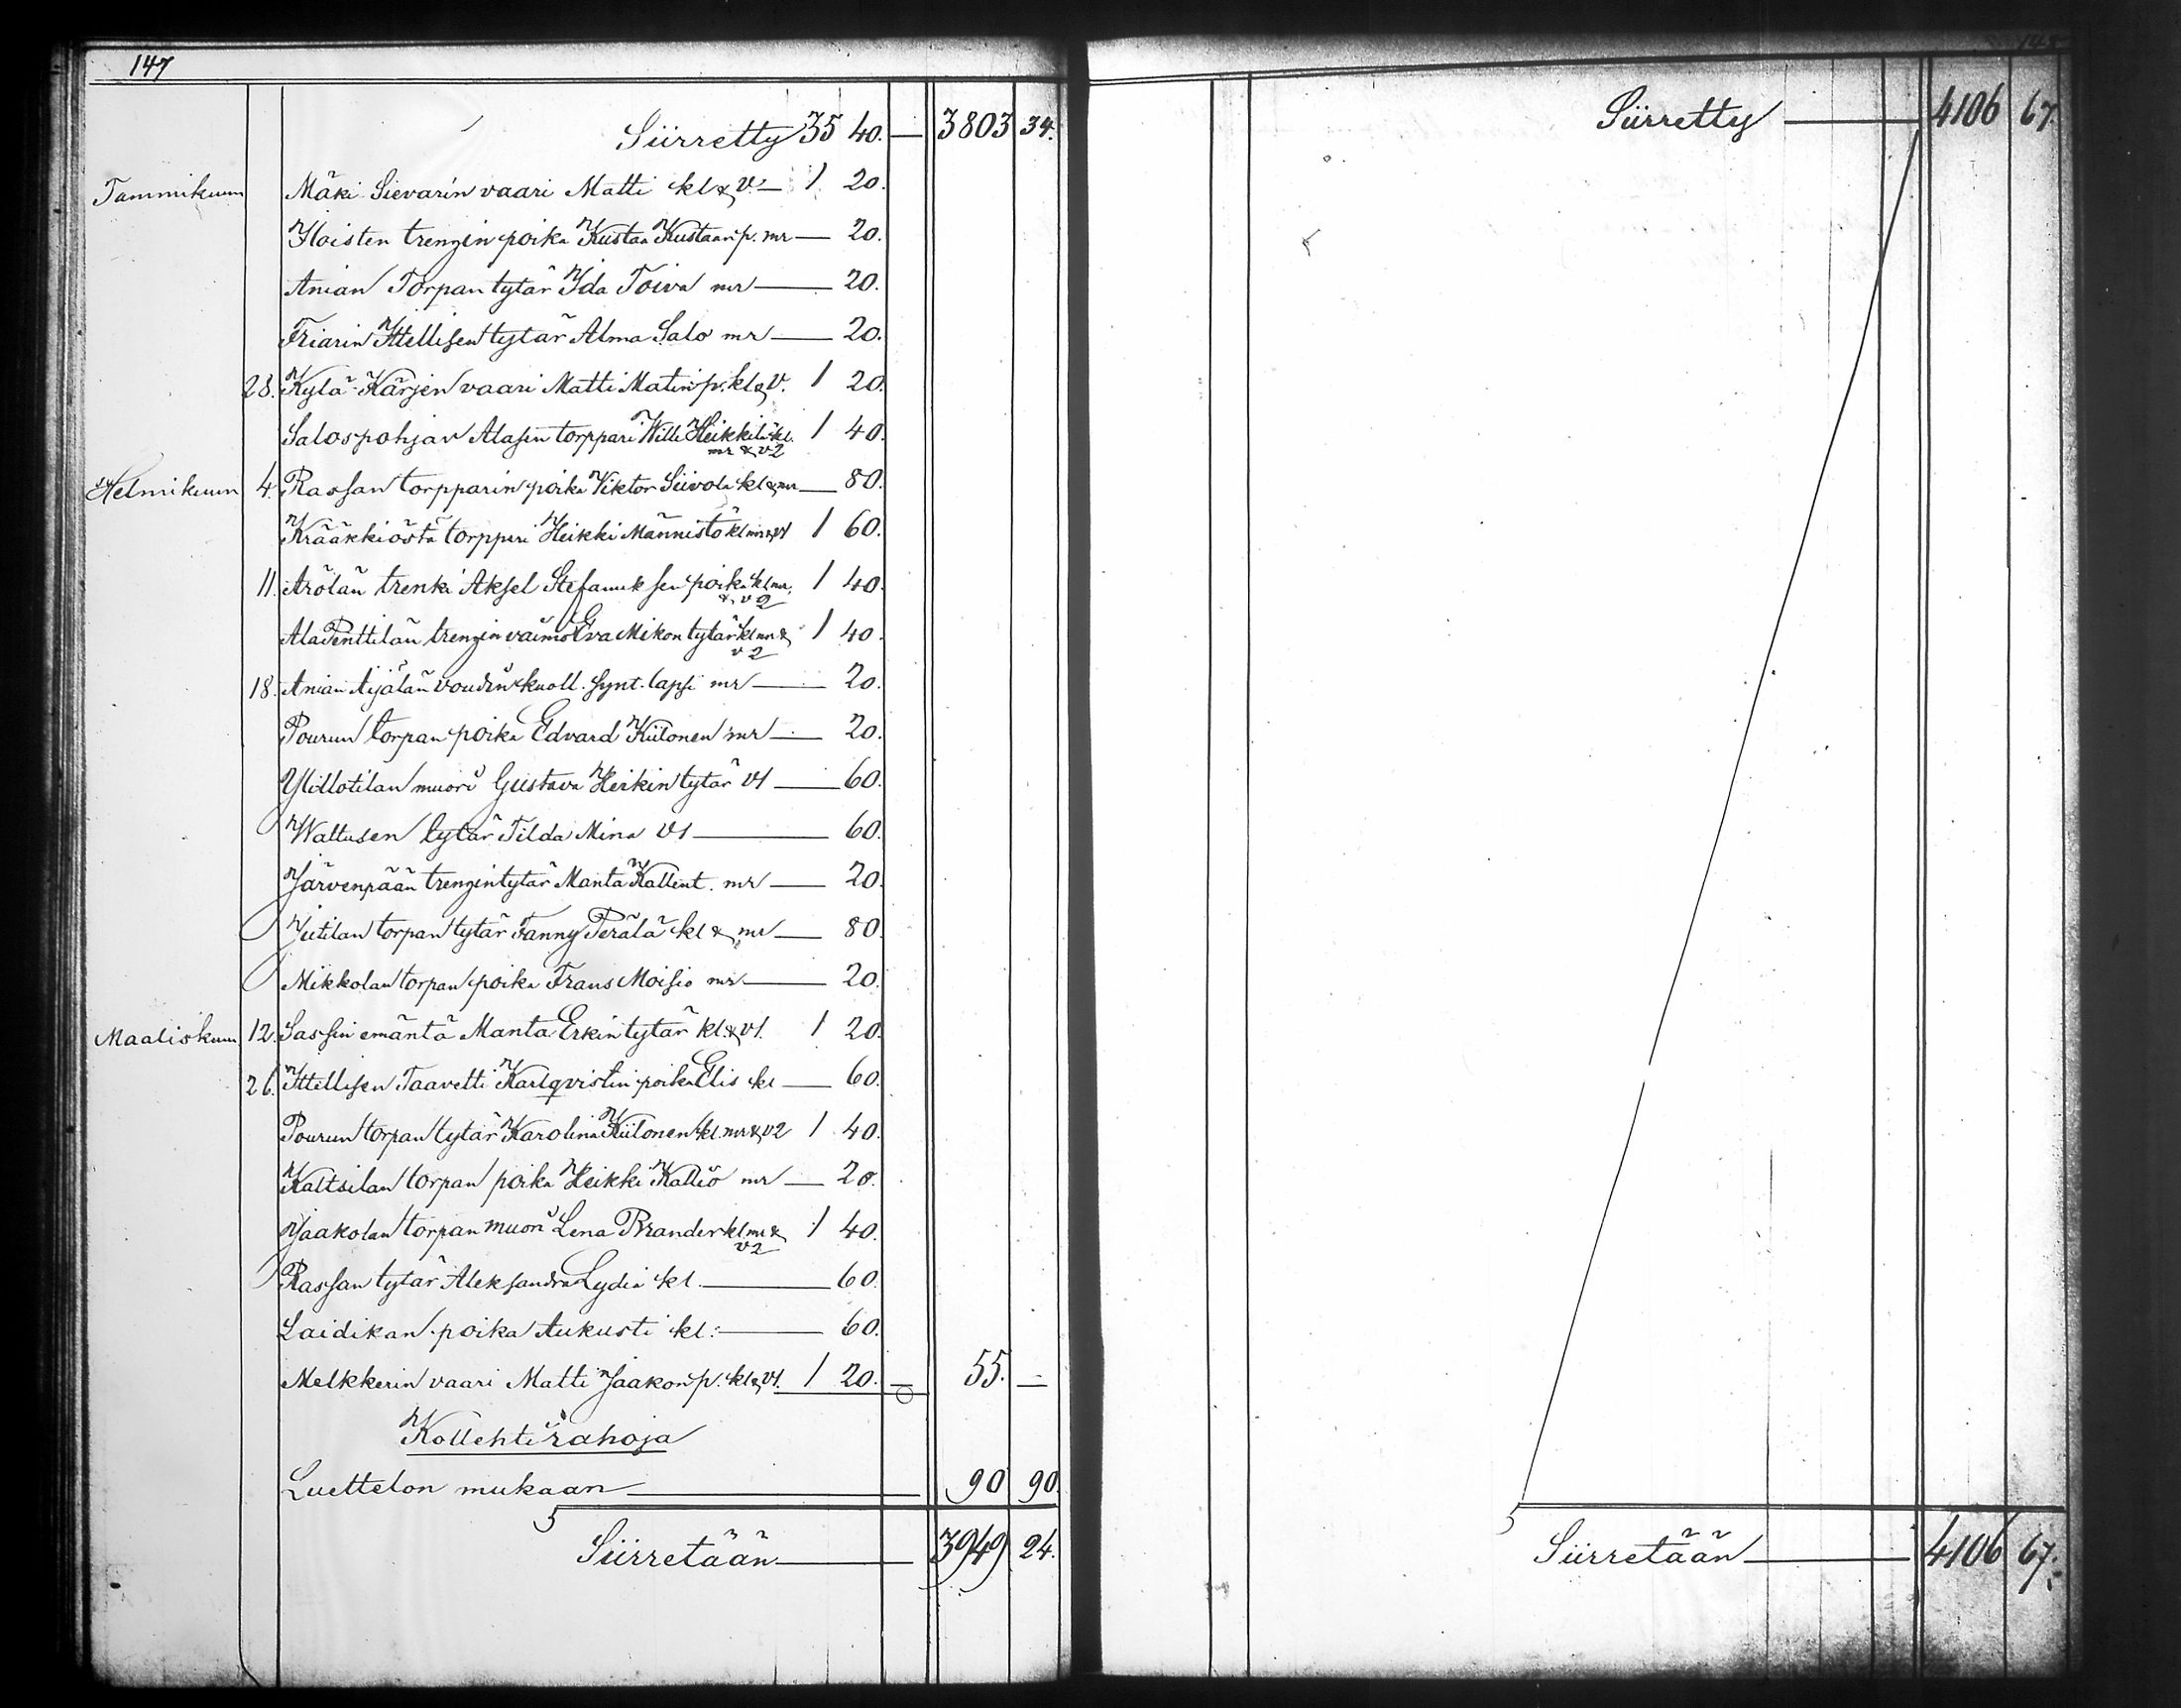 147
Siirretty 35 40. — 3803 34.
Tammikuun Mäki Sievarin vaari Matti kl & v. — 1 20.
Iloisten trengin poika Kustaa Kustaan p. mr — 20.
Anian Torpan tytär Ida Toiva mr — 20.
Friarin Ittellisen tytär Alma Salo mr — 20.
28. Kylä-Kärjen vaari Matti Matin p. kl & v. 1 20.
Salospohjan Alasen torppari Wille Heikkilä kl. 1 40.
mr & v2
Helmikuun 4. Rassan torpparin poika Viktor Siivola kl & mr — 80.
Krääkkiöstä torppari Heikki Männistö kl mr & v1 1 60.
11. Arölän trenki Aksel Stefanuksen poika kl mr, 1 40.
& v2
Ala Penttilän trengin vaimo Eva Mikon tytär kl mr & 1 40.
v2
18. Anian Äijälän voudin kuoll. synt. lapsi mr — 20.
Pourun torpan poika Edvard Kiilonen mr — 20.
Ylillotilan muori Gustava Heikin tytär v1 — 60.
Wattusen tytär Tilda Mina v1 — 60.
Järvenpään trengin tytär Manta Kallent. mr — 20.
Jutilan torpan tytär Fanny Perälä kl & mr — 80.
Mikkolan torpan poika Frans Moisio mr — 20.
Maaliskuun 12. Sassin emäntä Manta Erkin tytär kl. & v1. 1 20.
26. Ittellisen Taavetti Karlqvistin poika Elis kl — 60.
Pourun torpan tytär Karolina Kiilonen kl. mr & v2 1 40.
Kaltsilan torpan poika Heikki Kallio mr — 20.
Jaakolan torpan muori Lena Brander kl mr & 1 40.
v2
Rassan tytär Aleksandra Lydia kl. — 60.
Laidikan poika Aukusti kl: — 60.
Melkkerin vaari Matti Jaakon p. kl & v1. 1 20. — 55. —
Kollehti rahoja
Luettelon mukaan — 90 90
Siirretään — 3949 24.
Siirretty — 4106 67.
Siirretään — 4106 67.